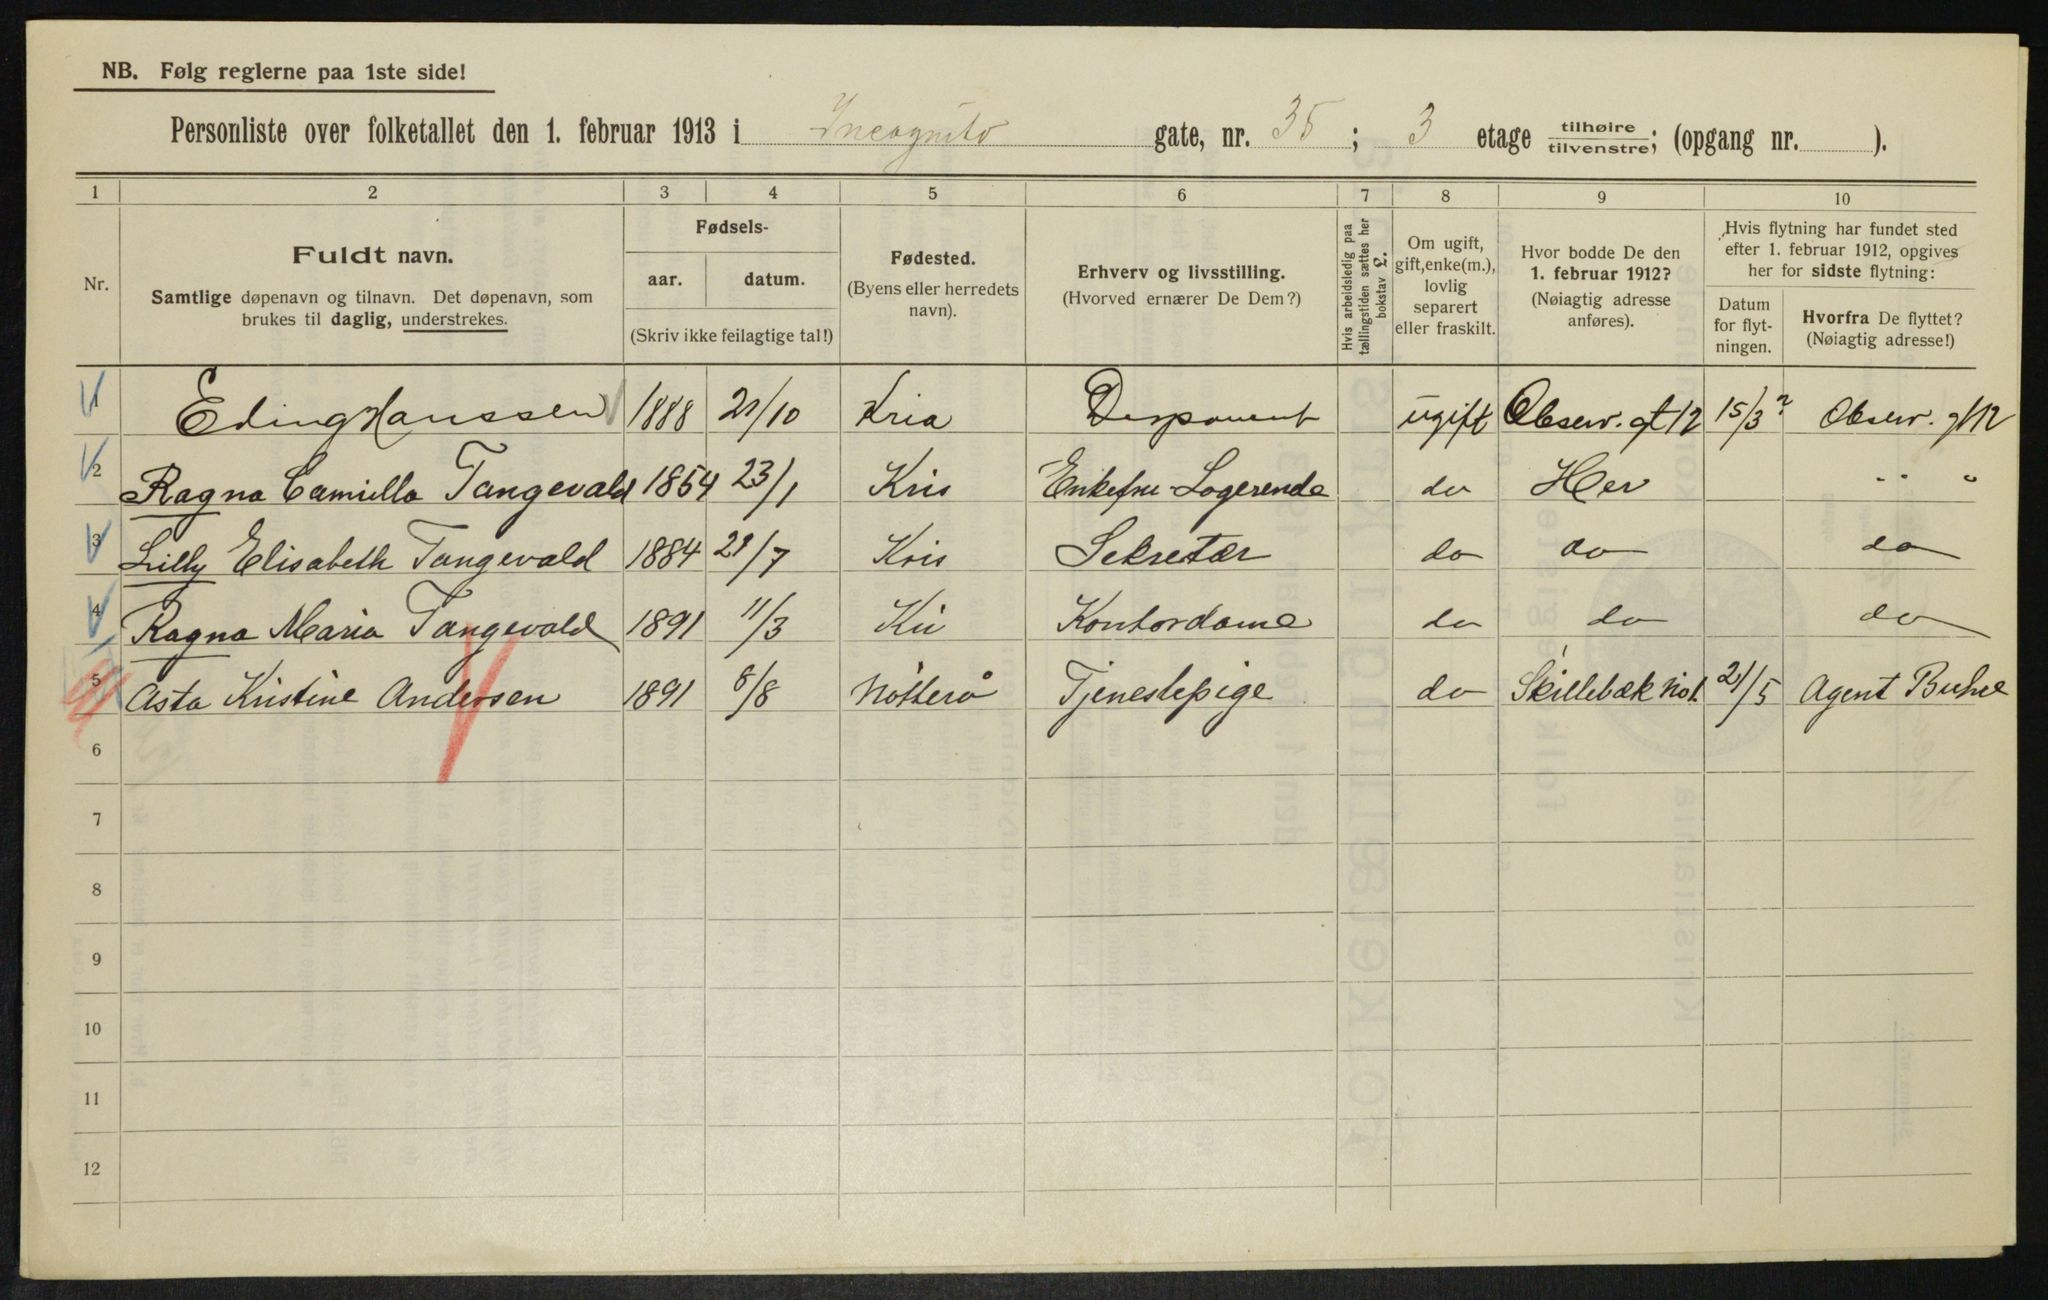 NB. Følg reglerne paa 1ste side!
Personliste over folketallet den 1. februar 1913 i Incognito gate, nr. 35 ; 3 etage tilhøire tilvenstre; (opgang nr. ).
1 2 3 4 5 6 7 8 9 10
Nr.
Fuldt navn.
Samtlige døpenavn og tilnavn. Det døpenavn, som
brukes til daglig, understrekes.
Fødsels-
aar. datum.
(Skriv ikke feilagtige tal!)
Fødested.
(Byens eller herredets
navn).
Erhverv og livsstilling.
(Hvorved ernærer De Dem?)
Hvis arbeidsledig paa
tællingstiden sættes her
bokstav L.
Om ugift,
gift, enke(m.),
lovlig
separert
eller fraskilt.
Hvor bodde De den
1. februar 1912?
(Nøiagtig adresse
anføres).
Hvis flytning har fundet sted
efter 1. februar 1912, opgives
her for sidste flytning:
Datum
for flyt-
ningen.
Hvorfra De flyttet?
(Nøiagtig adresse!)
1 Eding Hanssen 1888 21/10 Kria Disponent ugift Observ. gt 12 15/3 ? Observ. gt 12
2 Ragna Camilla Tangevald 1854 23/1 Kris Enkefru - Logerende do Her " "
3 Lilly Elisabeth Tangevald 1884 21/7 Kris Sekretær do do do
4 Ragna Maria Tangevald 1891 11/3 Kri Kontordame do do do
5 Asta Kristine Andersen 1891 8/8 Nötterö Tjenestepige do Skillebæk No 1. 21/5 Agent Buhre
6
7
8
9
10
11
12